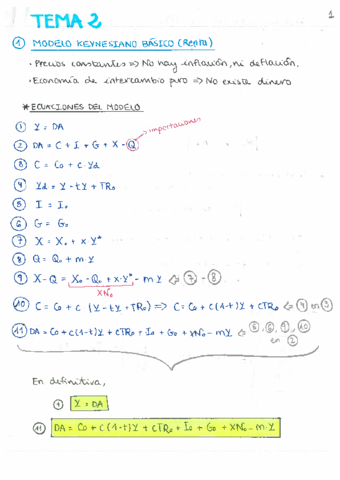 1
TEMA 2
① MODELO KEYNESIANO BÁSICO (Regla)
· Precios constantes => No hay inflación, ni deflación.
· Economía de intercambio puro => No existe dinero
* ECUACIONES DEL MODELO
① Y = DA
② DA = C + I + G + X - Q → importaciones
③ C = C₀ + c · Yd
④ Yd = Y - tY + TR₀
⑤ I = I₀
⑥ G = G₀
⑦ X = X₀ + x Y*
⑧ Q = Q₀ + m · Y
⑨ X - Q = X₀ - Q₀ + x · Y* - m Y ⇐ ⑦ - ⑧
XN₀
⑩ C = C₀ + c (Y - tY + TR₀) => C = C₀ + c(1-t)Y + cTR₀ ⇐ ④ en ③
⑪ DA = C₀ + c(1-t)Y + cTR₀ + I₀ + G₀ + XN₀ - mY ⇐ ⑤, ⑥, ⑨, ⑩
en ②
En definitiva,
① Y = DA
⑪ DA = C₀ + c(1-t)Y + cTR₀ + I₀ + G₀ + XN₀ - m · Y